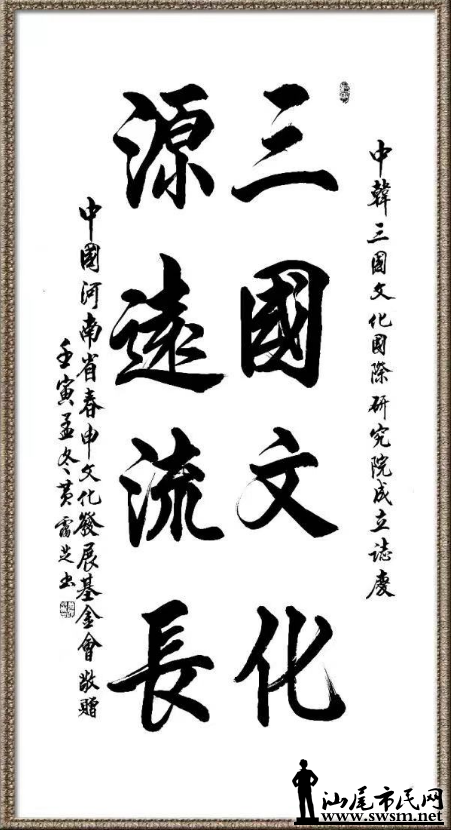 中韓三國文化國際研究院成立誌慶
三國文化
源遠流長
中國河南省春申文化發展基金會敬贈
壬寅孟冬黃雷芝书
汕尾市民网
www.swsm.net